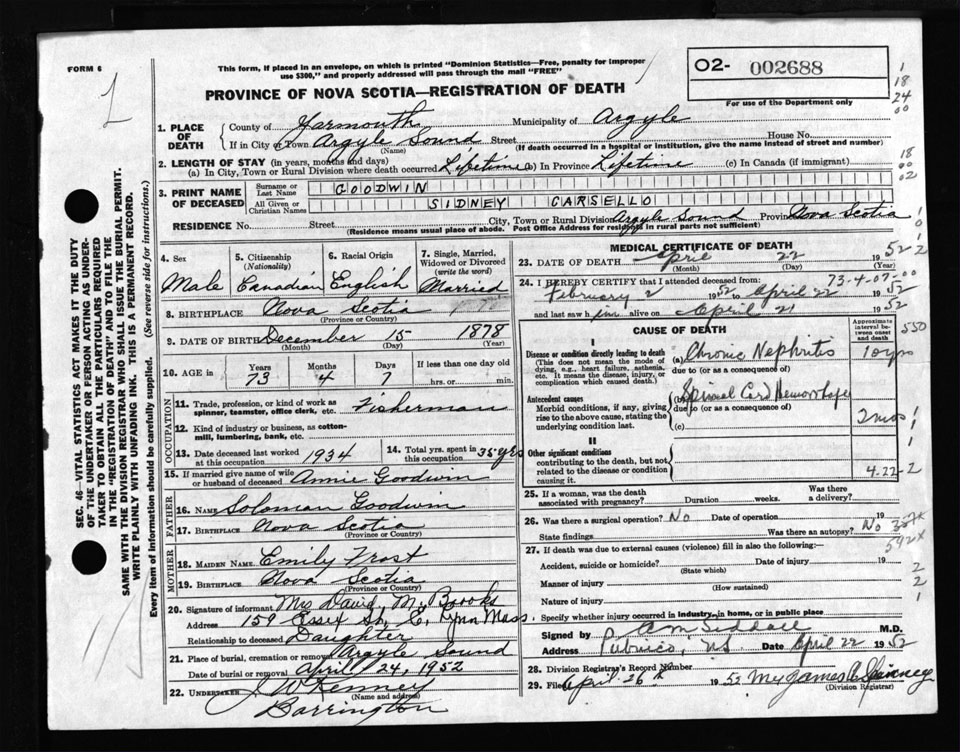 FORM 6
This form, if placed in an envelope, on which is printed "Dominion Statistics—Free, penalty for improper
use $300," and properly addressed will pass through the mail "FREE"
O2- 002688
For use of the Department only
1
18
24
00
PROVINCE OF NOVA SCOTIA—REGISTRATION OF DEATH
1. PLACE OF DEATH
County of Yarmouth Municipality of Argyle
If in City or Town Argyle Sound Street House No.
(Name) (If death occurred in a hospital or institution, give the name instead of street and number)
2. LENGTH OF STAY (in years, months and days)
(a) In City, Town or Rural Division where death occurred Lifetime (b) in Province Lifetime (c) In Canada (if immigrant)
18
00
02
3. PRINT NAME OF DECEASED
Surname or Last Name GOODWIN
All Given or Christian Names SIDNEY CARSELLO
RESIDENCE No. Street City, Town or Rural Division Argyle Sound Province Nova Scotia
(Residence means usual place of abode. Post Office Address for residents in rural parts not sufficient)
4. Sex
Male
5. Citizenship
(Nationality)
Canadian
6. Racial Origin
English
7. Single, Married,
Widowed or Divorced
(write the word)
Married
8. BIRTHPLACE Nova Scotia
(Province or Country)
9. DATE OF BIRTH December 15 1878
(Month) (Day) (Year)
10. AGE in
Years Months Days If less than one day old
73 4 7 hrs. or min.
OCCUPATION
11. Trade, profession, or kind of work as
spinner, teamster, office clerk, etc. Fisherman
12. Kind of industry or business, as cotton-
mill, lumbering, bank, etc.
13. Date deceased last worked
at this occupation 1934
14. Total yrs. spent in
this occupation 35 yrs
15. If married give name of wife
or husband of deceased Annie Goodwin
FATHER
16. NAME Soloman Goodwin
17. BIRTHPLACE Nova Scotia
(Province or Country)
MOTHER
18. MAIDEN NAME Emily Frost
19. BIRTHPLACE Nova Scotia
(Province or Country)
20. Signature of informant Mrs David M. Brooks
Address 159 Essex St, E, Lynn Mass.
Relationship to deceased Daughter
21. Place of burial, cremation or removal Argyle Sound
Date of burial or removal April 24, 1952
22. UNDERTAKER J. W Kenney
(Name and address)
Barrington
MEDICAL CERTIFICATE OF DEATH
23. DATE OF DEATH April 22 1952
(Month) (Day) (Year)
24. I HEREBY CERTIFY that I attended deceased from: 73-4-07-00
February 2 1952 to April 22 1952
and last saw him alive on April 21 1952
CAUSE OF DEATH
Approximate
interval between
onset
and death
550
I
Disease or condition directly leading to death (a) Chronic Nephritis 10 yrs
(This does not mean the mode of
dying, e.g., heart failure, asthenia,
etc. It means the disease, injury, or
complication which caused death.)
due to (or as a consequence of)
Antecedent causes (b) Spinal Cord Hemorrhage
Morbid conditions, if any, giving
rise to the above cause, stating the
underlying condition last.
due to (or as a consequence of)
(c)
2 mos
II
Other significant conditions
contributing to the death, but not
related to the disease or condition
causing it.
4.22-2
25. If a woman, was the death
associated with pregnancy? Duration weeks. Was there
a delivery?
26. Was there a surgical operation? No Date of operation 19
State findings Was there an autopsy? No
592x
27. If death was due to external causes (violence) fill in also the following:—
Accident, suicide or homicide? Date of injury 19
(State which)
Manner of injury
(How sustained)
Nature of injury
Specify whether injury occurred in industry, in home, or in public place
Signed by M.D.
Address Pubnico, NS Date April 22 1952
28. Division Registrar's Record Number
29. Filed April 26th 1952 Mrs James
(Division Registrar)
SEC. 46—VITAL STATISTICS ACT MAKES IT THE DUTY
OF THE UNDERTAKER OR PERSON ACTING AS UNDER-
TAKER TO OBTAIN ALL THE PARTICULARS REQUIRED
IN THE "REGISTRATION OF DEATH" AND TO FILE THE
SAME WITH THE DIVISION REGISTRAR WHO SHALL ISSUE THE BURIAL PERMIT.
WRITE PLAINLY WITH UNFADING INK. THIS IS A PERMANENT RECORD.
Every item of information should be carefully supplied. (See reverse side for instructions.)